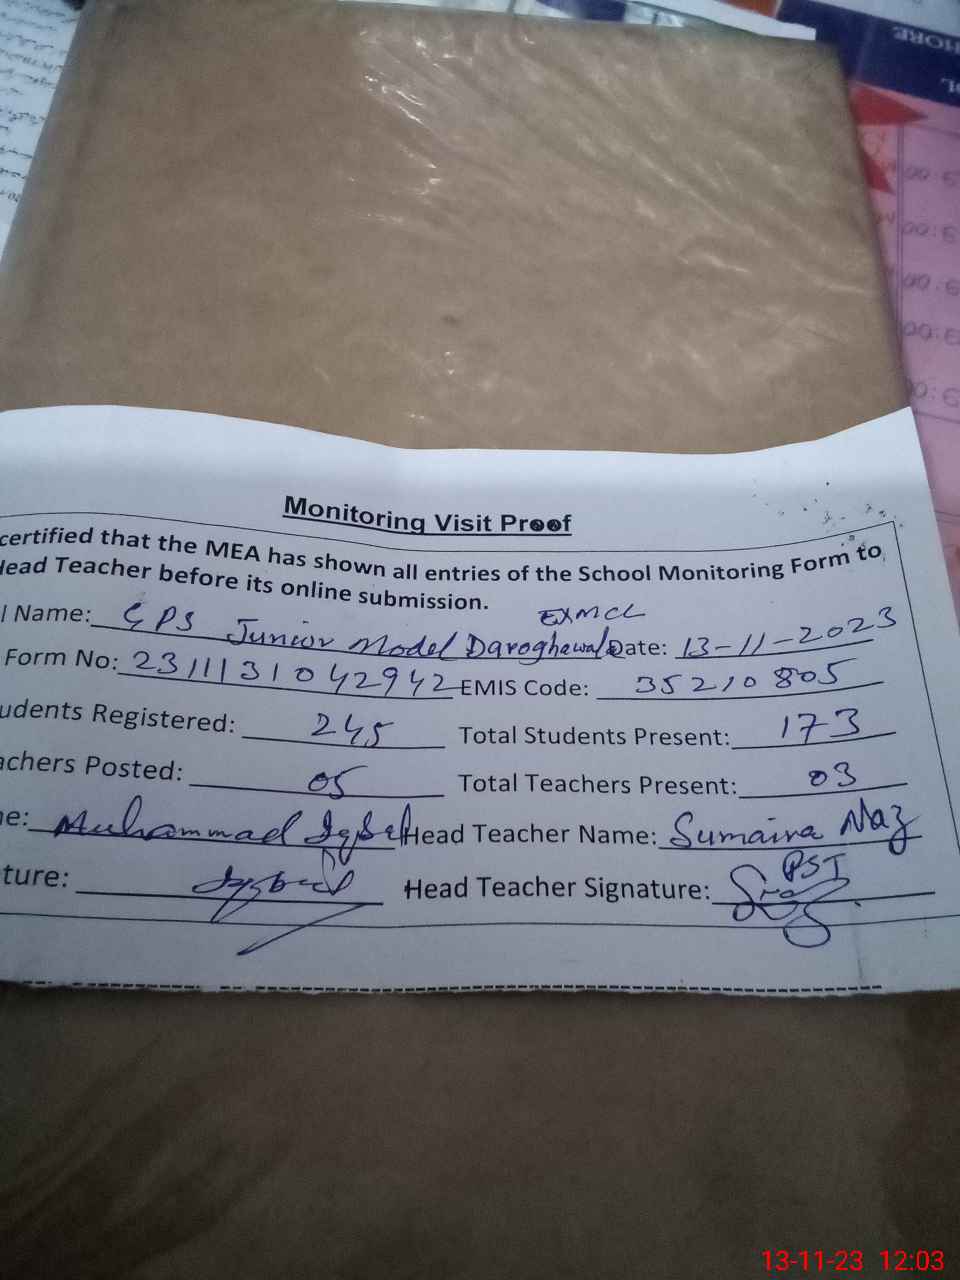 HORE
Monitoring Visit Proof
certified that the MEA has shown all entries of the School Monitoring Form to
Head Teacher before its online submission.
l Name: GPS Junior Model Daroghewala EXMCL Date: 13-11-2023
Form No: 2311131042942 EMIS Code: 35210805
udents Registered: 245 Total Students Present: 173
achers Posted: 05 Total Teachers Present: 03
me: Muhammad Iqbal Head Teacher Name: Sumaira Naz
ture: Iqbal Head Teacher Signature: PST
13-11-23 12:03